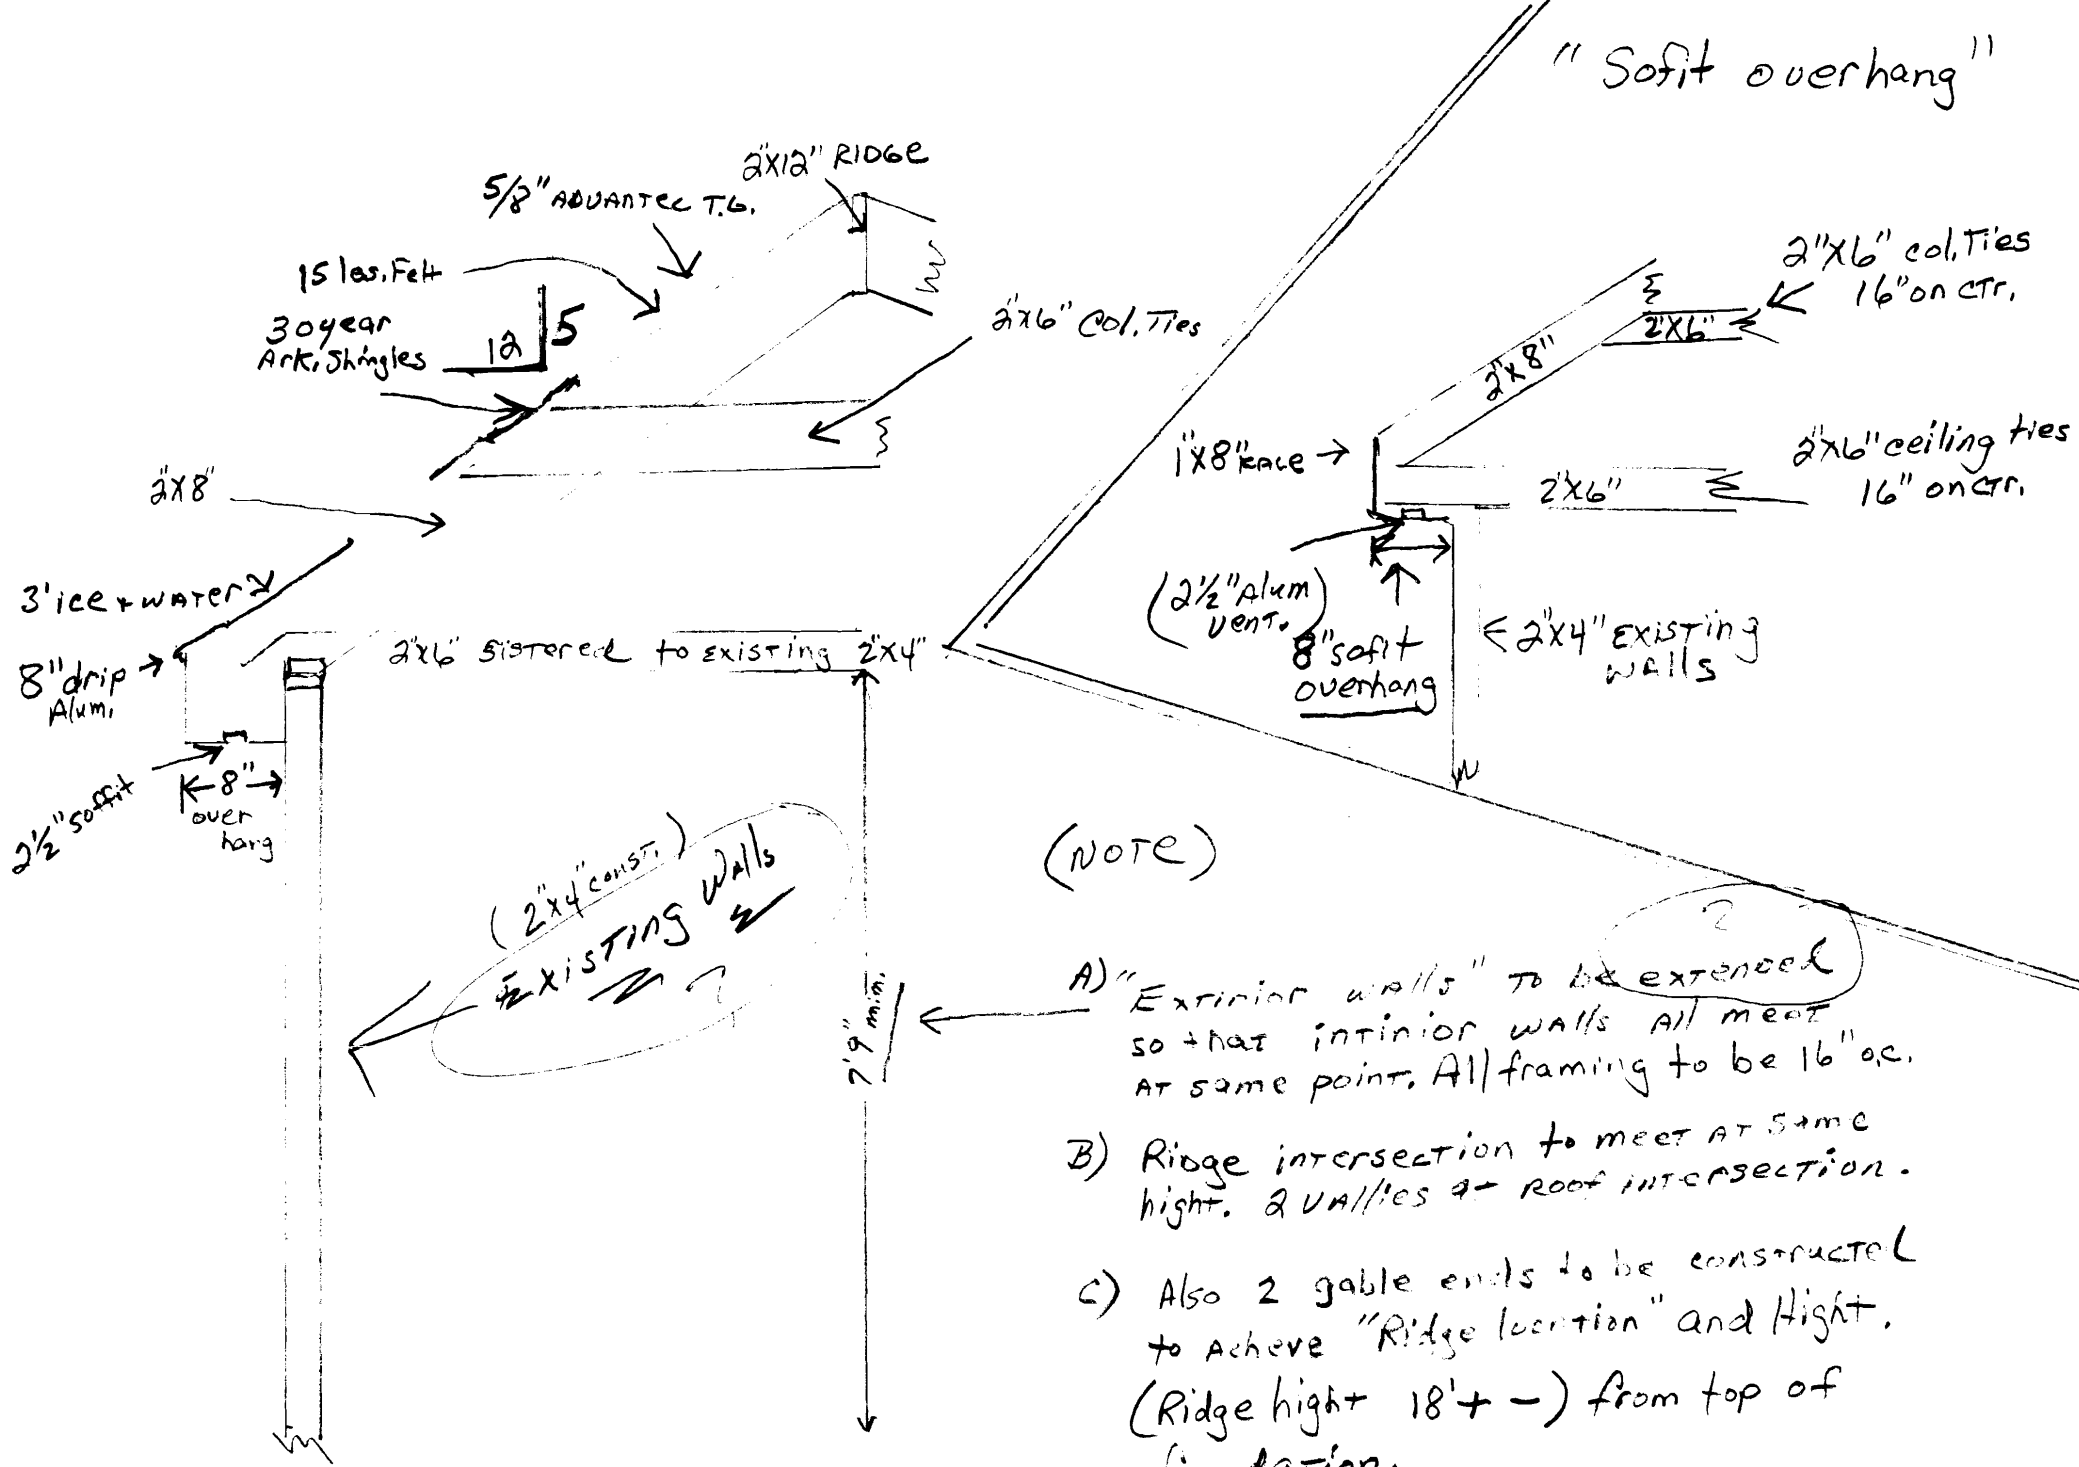 "Sofit overhang"
2"x12" RIDGE
5/8" ADVANTEC T.G.
15 lbs. Felt
30 year
Ark. Shingles
12
5
2"x6" Col. Ties
2"x8"
3' ice + WATer
8" drip
Alum.
2"x6" Sistered to Existing 2"x4"
2½" soffit
8"
over
hang
(2"x4" const.)
Existing Walls
?
7'9" min.
2"x6" col. Ties
16" on ctr.
2"x6"
2"x8"
1"x8"
2"x6" ceiling ties
16" on ctr.
2"x6"
(2½" Alum
vent.)
8" sofit
overhang
2"x4" Existing
WAlls
(NOTE)
?
A) "Extirior WAlls" To be extended
so that intirior WAlls All meet
AT same point. All framing to be 16" o.c.
B) Ridge intersection to meet AT Same
hight. 2 VAllies at Roof intersection.
C) Also 2 gable ends to be constructed
to Acheve "Ridge location" and Hight.
(Ridge hight 18'+ -) from top of